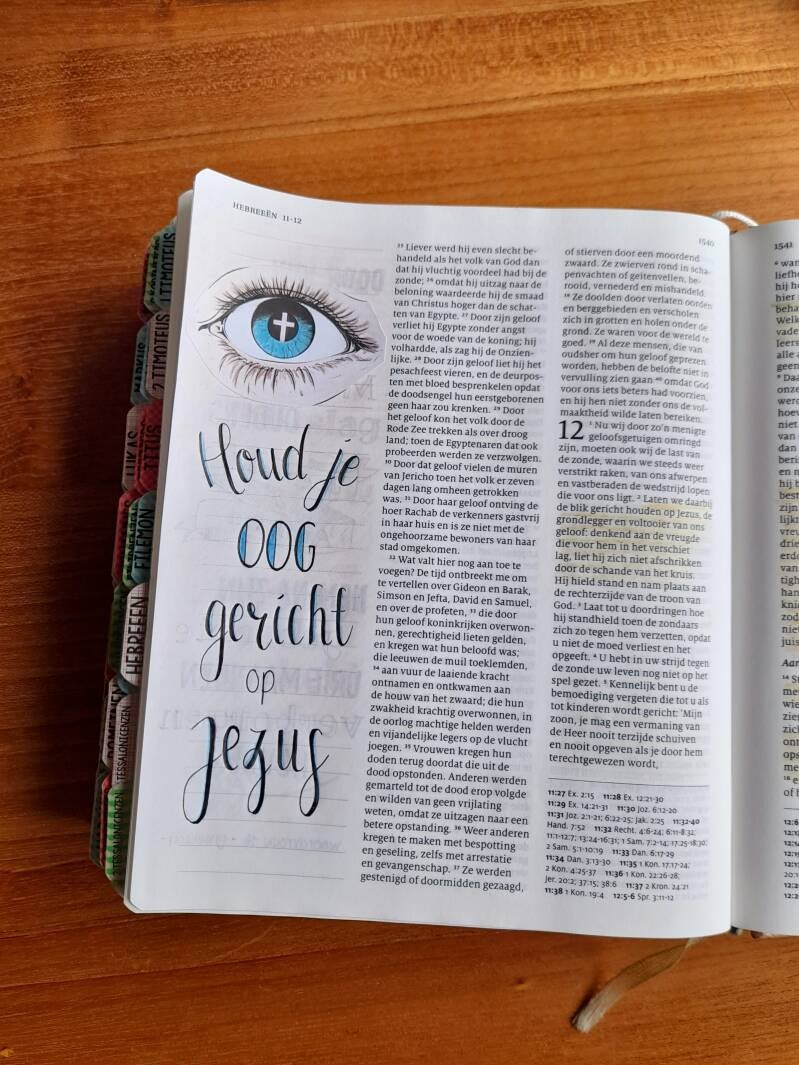 HEBREEËN 11-12
1540
Houd je
OOG
gericht
op
Jezus
²⁵ Liever werd hij even slecht be-
handeld als het volk van God dan
dat hij vluchtig voordeel had bij de
zonde; ²⁶ omdat hij uitzag naar de
beloning waardeerde hij de smaad
van Christus hoger dan de schat-
ten van Egypte. ²⁷ Door zijn geloof
verliet hij Egypte zonder angst
voor de woede van de koning; hij
volhardde, als zag hij de Onzien-
lijke. ²⁸ Door zijn geloof liet hij het
pesachfeest vieren, en de deurpos-
ten met bloed besprenkelen opdat
de doodsengel hun eerstgeborenen
geen haar zou krenken. ²⁹ Door
het geloof kon het volk door de
Rode Zee trekken als over droog
land; toen de Egyptenaren dat ook
probeerden werden ze verzwolgen.
³⁰ Door dat geloof vielen de muren
van Jericho toen het volk er zeven
dagen lang omheen getrokken
was. ³¹ Door haar geloof ontving de
hoer Rachab de verkenners gastvrij
in haar huis en is ze niet met de
ongehoorzame bewoners van haar
stad omgekomen.
³² Wat valt hier nog aan toe te
voegen? De tijd ontbreekt me om
te vertellen over Gideon en Barak,
Simson en Jefta, David en Samuel,
en over de profeten, ³³ die door
hun geloof koninkrijken overwon-
nen, gerechtigheid lieten gelden,
en kregen wat hun beloofd was;
die leeuwen de muil toeklemden,
³⁴ aan vuur de laaiende kracht
ontnamen en ontkwamen aan
de houw van het zwaard; die hun
zwakheid krachtig overwonnen, in
de oorlog machtige helden werden
en vijandelijke legers op de vlucht
joegen. ³⁵ Vrouwen kregen hun
doden terug doordat die uit de
dood opstonden. Anderen werden
gemarteld tot de dood erop volgde
en wilden van geen vrijlating
weten, omdat ze uitzagen naar een
betere opstanding. ³⁶ Weer anderen
kregen te maken met bespotting
en geseling, zelfs met arrestatie
en gevangenschap. ³⁷ Ze werden
gestenigd of doormidden gezaagd,
of stierven door een moordend
zwaard. Ze zwierven rond in scha-
penvachten of geitenvellen, be-
rooid, vernederd en mishandeld.
³⁸ Ze doolden door verlaten oorden
en berggebieden en verscholen
zich in grotten en holen onder de
grond. Ze waren voor de wereld te
goed. ³⁹ Al deze mensen, die van
oudsher om hun geloof geprezen
worden, hebben de belofte niet in
vervulling zien gaan ⁴⁰ omdat God
voor ons iets beters had voorzien,
en hij hen niet zonder ons de vol-
maaktheid wilde laten bereiken.
12 ¹ Nu wij door zo’n menigte
geloofsgetuigen omringd
zijn, moeten ook wij de last van
de zonde, waarin we steeds weer
verstrikt raken, van ons afwerpen
en vastberaden de wedstrijd lopen
die voor ons ligt. ² Laten we daarbij
de blik gericht houden op Jezus, de
grondlegger en voltooier van ons
geloof: denkend aan de vreugde
die voor hem in het verschiet
lag, liet hij zich niet afschrikken
door de schande van het kruis.
Hij hield stand en nam plaats aan
de rechterzijde van de troon van
God. ³ Laat tot u doordringen hoe
hij standhield toen de zondaars
zich zo tegen hem verzetten, opdat
u niet de moed verliest en het
opgeeft. ⁴ U hebt in uw strijd tegen
de zonde uw leven nog niet op het
spel gezet. ⁵ Kennelijk bent u de
bemoediging vergeten die tot u als
tot kinderen wordt gericht: ‘Mijn
zoon, je mag een vermaning van
de Heer nooit terzijde schuiven
en nooit opgeven als je door hem
terechtgewezen wordt,
11:27 Ex. 2:15 11:28 Ex. 12:21-30
11:29 Ex. 14:21-31 11:30 Joz. 6:12-20
11:31 Joz. 2:1-21; 6:22-25; Jak. 2:25 11:32-40
Hand. 7:52 11:32 Recht. 4:6-24; 6:11-8:32;
11:1-12:7; 13:24-16:31; 1 Sam. 7:2-14; 17:25-18:30;
2 Sam. 5:1-10:19 11:33 Dan. 6:17-29
11:34 Dan. 3:13-30 11:35 1 Kon. 17:17-24;
2 Kon. 4:25-37 11:36 1 Kon. 22:26-28;
Jer. 20:2; 37:15; 38:6 11:37 2 Kron. 24:21
11:38 1 Kon. 19:4 12:5-6 Spr. 3:11-12
1541
1 TIMOTEÜS
2 TIMOTEÜS
MARKUS
TITUS
LUKAS
FILEMON
HEBREEËN